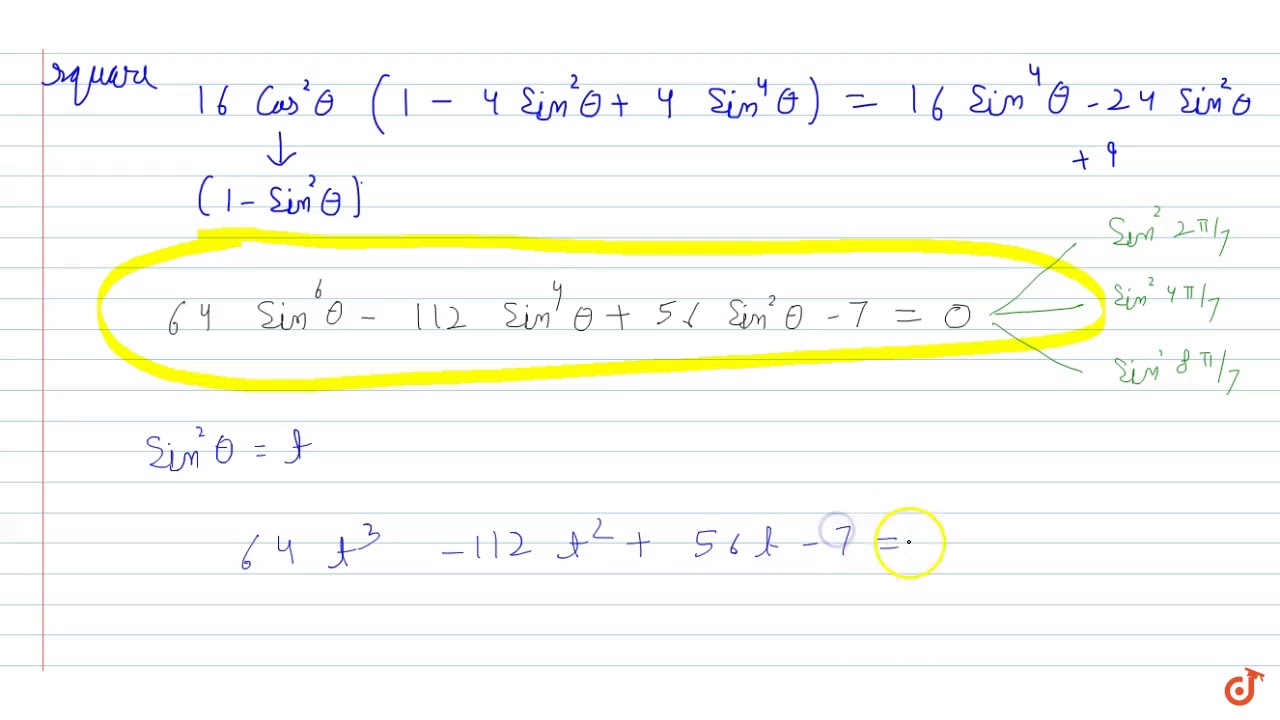 square
16 Cos²θ (1 - 4 Sin²θ + 4 Sin⁴θ) = 16 Sin⁴θ - 24 Sin²θ
+ 9
↓
(1 - Sin²θ)
Sin² 2π/7
64 Sin⁶θ - 112 Sin⁴θ + 56 Sin²θ - 7 = 0
Sin² 4π/7
Sin² 8π/7
Sin²θ = t
64 t³ - 112 t² + 56 t - 7 =